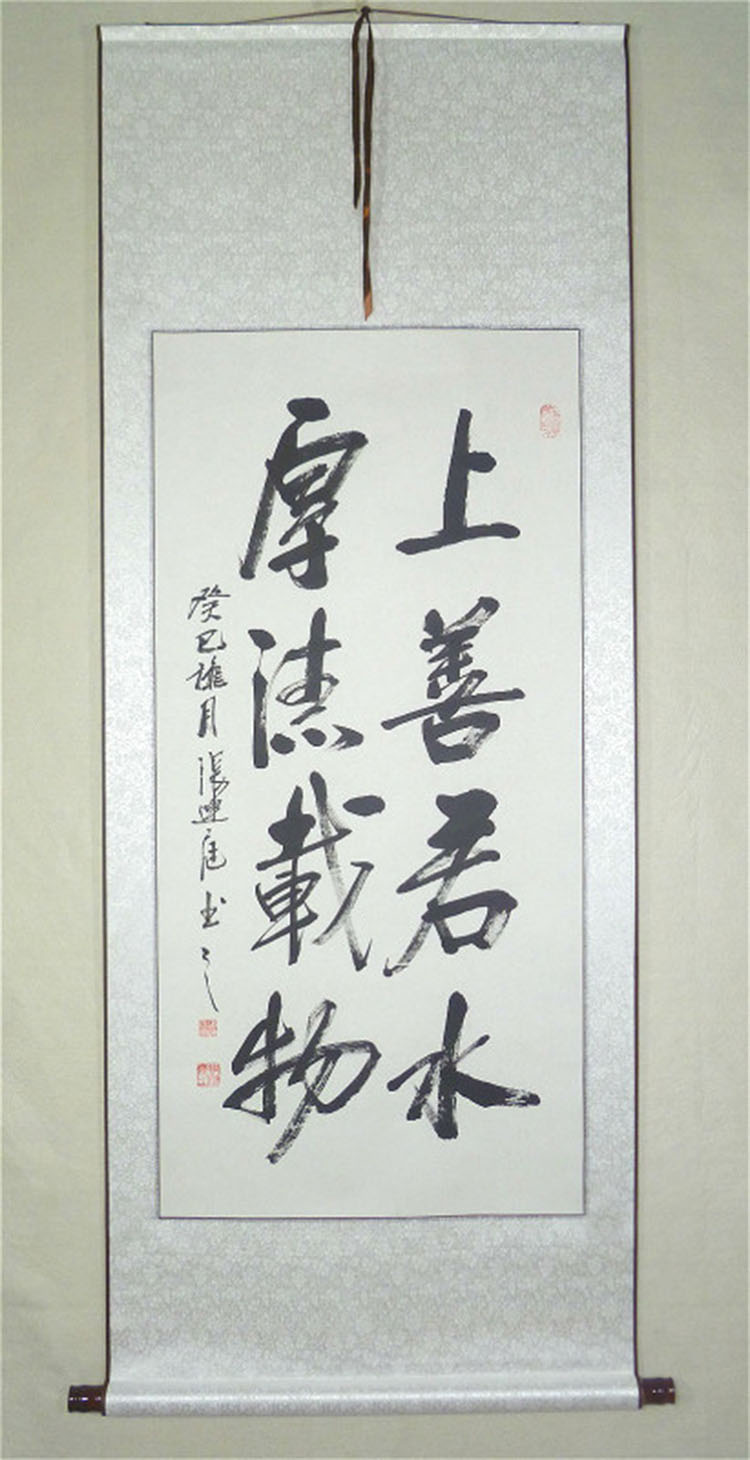 上善若水
厚德載物
癸巳雅月張建庭书之